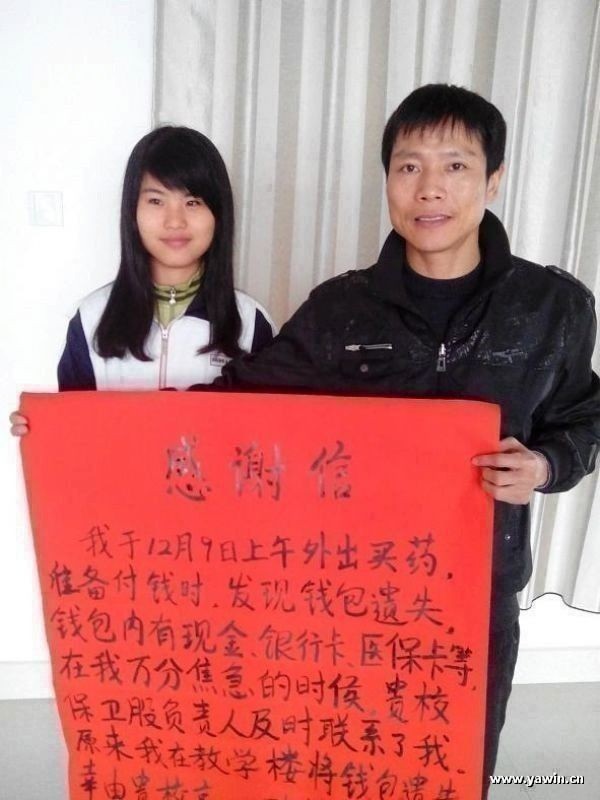 感谢信
我于12月9日上午外出买药，
准备付钱时，发现钱包遗失，
钱包内有现金、银行卡、医保卡等，
在我万分焦急的时侯，贵校
保卫股负责人及时联系了我。
原来我在教学楼将钱包遗失
幸由贵校高
www.yawin.cn